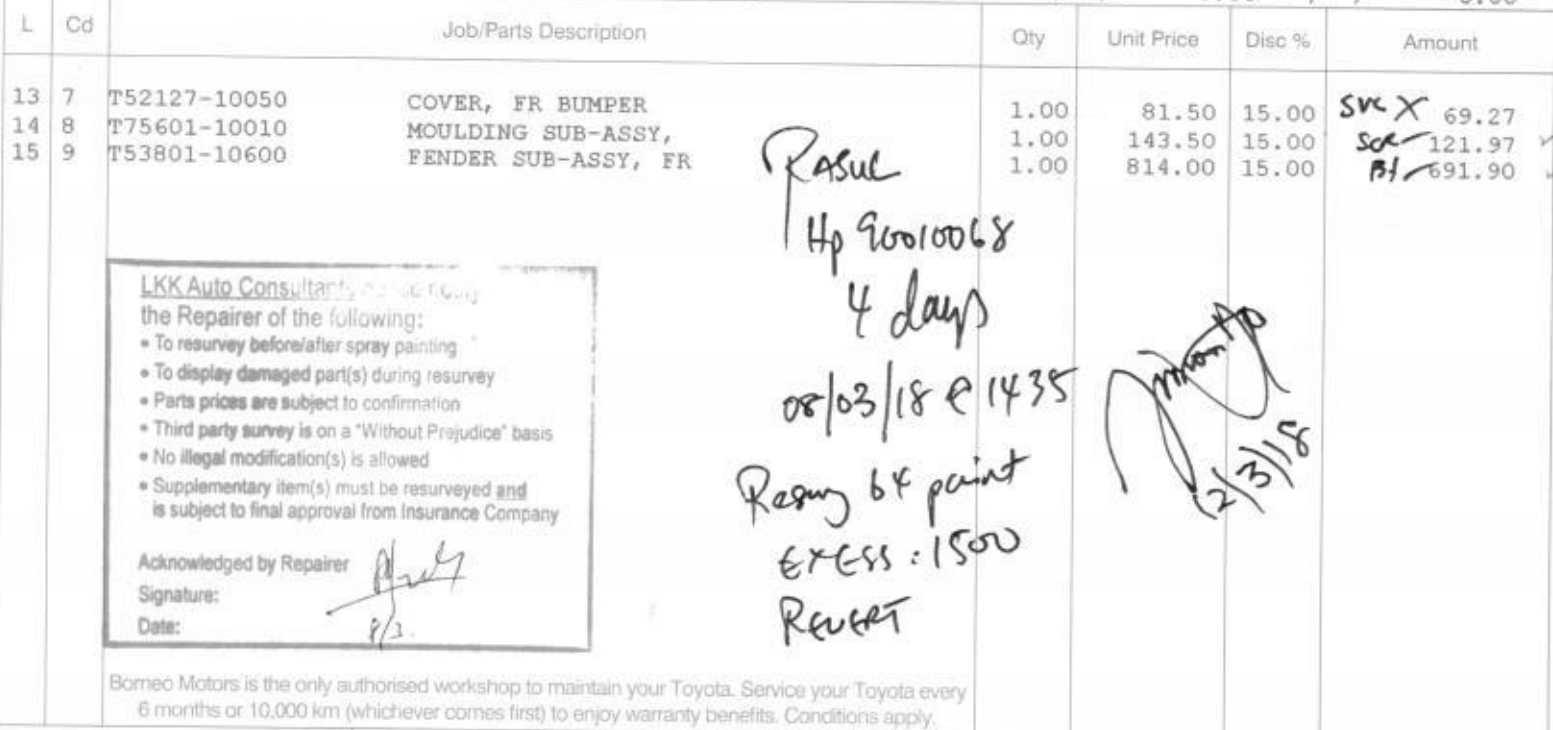 L Cd Job/Parts Description Qty Unit Price Disc % Amount
13 7 T52127-10050 COVER, FR BUMPER 1.00 81.50 15.00 SVC X 69.27
14 8 T75601-10010 MOULDING SUB-ASSY, 1.00 143.50 15.00 121.97
15 9 T53801-10600 FENDER SUB-ASSY, FR 1.00 814.00 15.00 691.90
RASUL
Hp 90010068
4 days
08/03/18 @ 1435
paint
EXESS: 1500
REVERT
12/3/18
LKK Auto Consultants
the Repairer of the following:
• To resurvey before/after spray painting
• To display damaged part(s) during resurvey
• Parts prices are subject to confirmation
• Third party survey is on a "Without Prejudice" basis
• No illegal modification(s) is allowed
• Supplementary item(s) must be resurveyed and
is subject to final approval from Insurance Company
Acknowledged by Repairer
Signature:
Date: 8/3.
Borneo Motors is the only authorised workshop to maintain your Toyota. Service your Toyota every
6 months or 10,000 km (whichever comes first) to enjoy warranty benefits. Conditions apply.